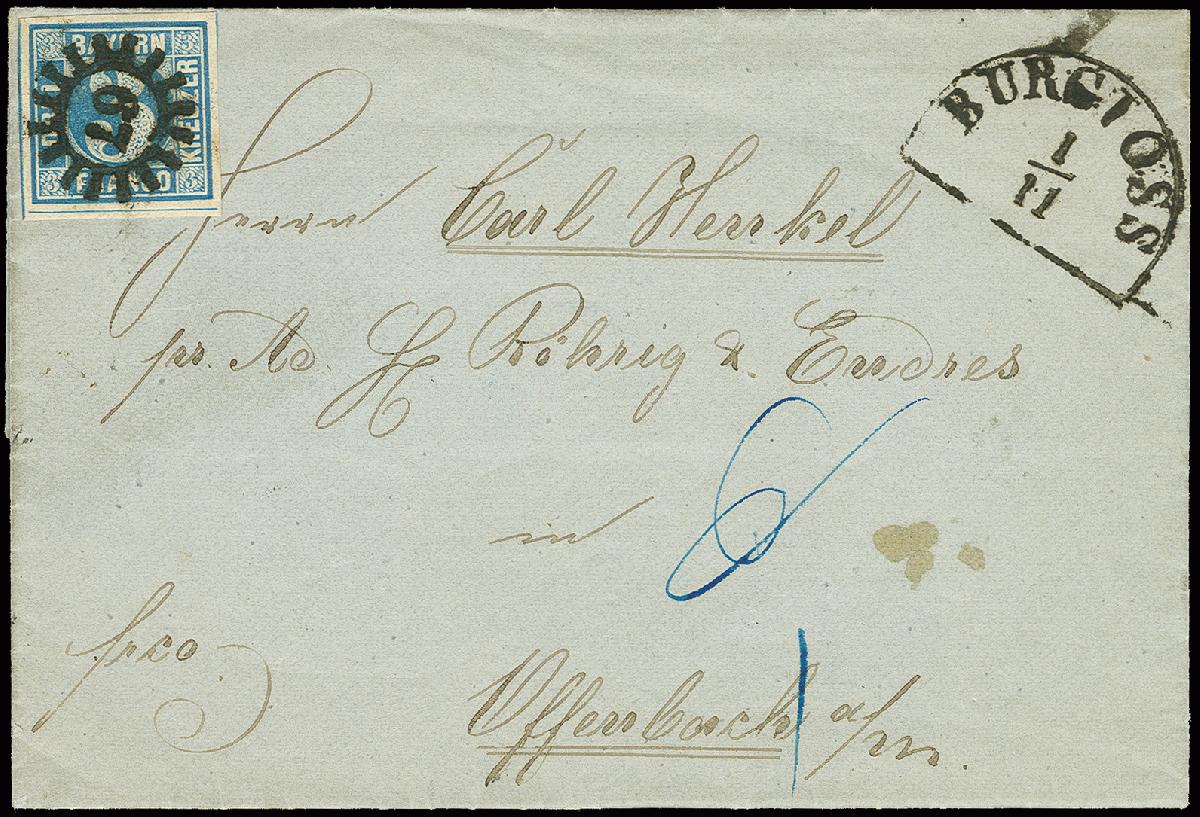 BAYERN
DREI
KREUZER
FRANCO
3 3 3 3
67
BURGJOSS
1/11
Herrn Carl Henkel
pr. Ad. H Röhrig & Endres
in
6
frco
Offenbach a/m.
1